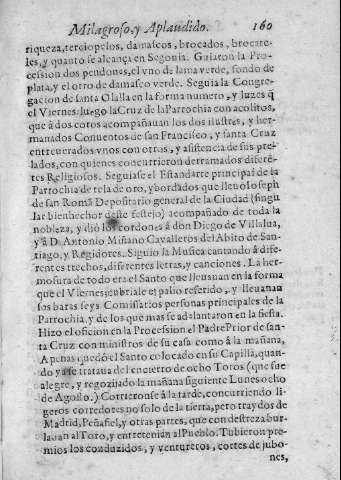 Milagroso, y Aplaudido. 160
riqueza, terciopelos, damascos, brocados, brocate-
les, y quanto se alcança en Segouia. Guiaron la Pro-
cession dos pendones, el vno de lama verde, fondo de
plata, y el otro de damasco verde. Seguia la Congre-
gacion de santa Olalla en la forma numero, y luzes q̃
el Viernes: luego la Cruz de la Parrochia con acolitos,
que à dos cotos acompañauan los dos ilustres, y her-
manados Conuentos de san Francisco, y santa Cruz
entreuerados vnos con otros, y asistencia de sus pre-
lados, con quienes concurrieron derramados diferē-
tes Religiosos. Seguiase el Estandarte principal de la
Parrochia de tela de oro, y bordados que lleuò Ioseph
de san Romā Depositario general de la Ciudad (singu
lar bienhechor deste festejo) acompañado de toda la
nobleza, y diò los cordones à don Diego de Villalua,
y à D. Antonio Miñano Caualleros del Abito de San-
tiago, y Regidores. Siguio la Musica cantando à dife-
rentes trechos, diferentes letras, y canciones. La her-
mosura de todo era el Santo que lleuauan en la forma
que el Viernes: cubriale el palio referido, y lleuauan
sus baras seys Comissarios personas principales de la
Parrochia, y de los que mas se adelantaron en la fiesta.
Hizo el oficio en la Procession el Padre Prior de san-
ta Cruz con ministros de su casa como à la mañana,
Apenas quedò el Santo colocado en su Capilla, quan-
do ya se trataua del encierro de ocho Toros (que fue
alegre, y regozijado la mañana siguiente Lunes ocho
de Agosto.) Corrieronse à la tarde, concurriendo li-
geros corredores no solo de la tierra, pero traydos de
Madrid, Peñafiel, y otras partes, que con destreza bur-
lauan al Toro, y entretenian al Pueblo. Tubieron pre-
mios los conduzidos, y ventureros, cortes de jubo-
nes,